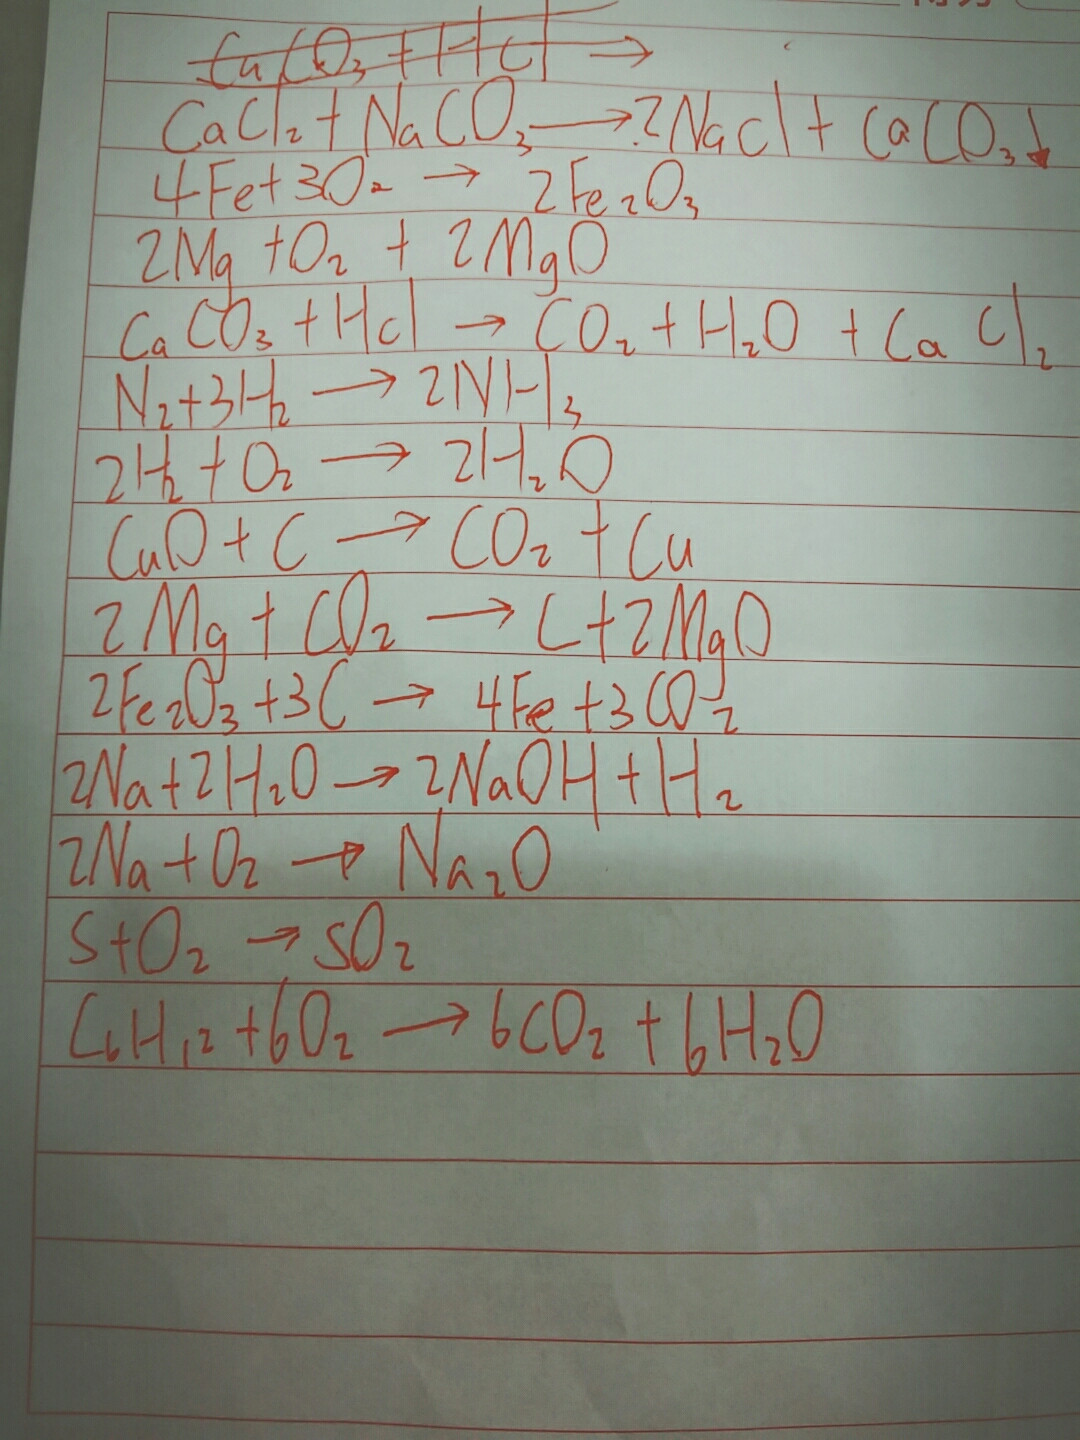 CaCO₃ + HCl →
CaCl₂ + NaCO₃ → 2NaCl + CaCO₃↓
4Fe + 3O₂ → 2Fe₂O₃
2Mg + O₂ + 2MgO
CaCO₃ + HCl → CO₂ + H₂O + CaCl₂
N₂ + 3H₂ → 2NH₃
2H₂ + O₂ → 2H₂O
CuO + C → CO₂ + Cu
2Mg + CO₂ → C + 2MgO
2Fe₂O₃ + 3C → 4Fe + 3CO₂
2Na + 2H₂O → 2NaOH + H₂
2Na + O₂ → Na₂O
S + O₂ → SO₂
C₆H₁₂ + 6O₂ → 6CO₂ + 6H₂O